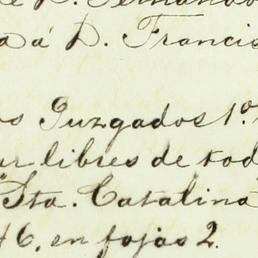 D. Fernando
a á D. Francis
os Juzgados 1.º
ur libres de tod
Sta. Catalina
46, en fojas 2.